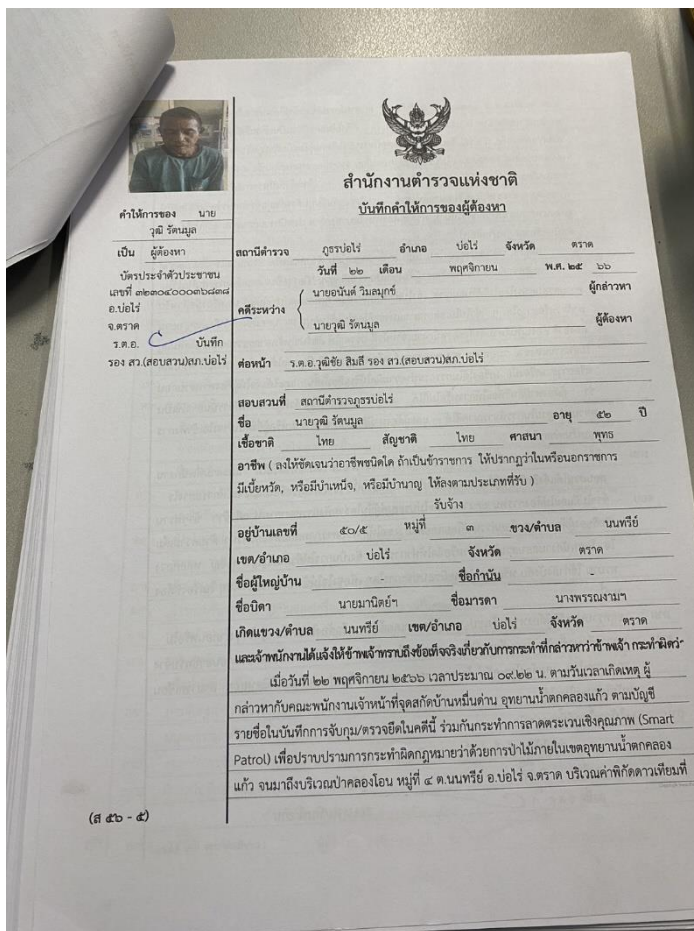 สำนักงานตำรวจแห่งชาติ
บันทึกคำให้การของผู้ต้องหา
คำให้การของ นาย
วุฒิ รัตนมูล
เป็น ผู้ต้องหา
บัตรประจำตัวประชาชน
เลขที่ ๓๒๓๐๔๐๐๐๓๖๘๓๘
อ.บ่อไร่
จ.ตราด
ร.ต.อ. บันทึก
รอง สว.(สอบสวน)สภ.บ่อไร่
สถานีตำรวจ ภูธรบ่อไร่ อำเภอ บ่อไร่ จังหวัด ตราด
วันที่ ๒๒ เดือน พฤศจิกายน พ.ศ. ๒๕ ๖๖
คดีระหว่าง
นายอนันต์ วิมลมุกข์ ผู้กล่าวหา
นายวุฒิ รัตนมูล ผู้ต้องหา
ต่อหน้า ร.ต.อ.วุฒิชัย สิมลี รอง สว.(สอบสวน)สภ.บ่อไร่
สอบสวนที่ สถานีตำรวจภูธรบ่อไร่
ชื่อ นายวุฒิ รัตนมูล อายุ ๕๒ ปี
เชื้อชาติ ไทย สัญชาติ ไทย ศาสนา พุทธ
อาชีพ ( ลงให้ชัดเจนว่าอาชีพชนิดใด ถ้าเป็นข้าราชการ ให้ปรากฏว่าในหรือนอกราชการ
มีเบี้ยหวัด, หรือมีบำเหน็จ, หรือมีบำนาญ ให้ลงตามประเภทที่รับ )
รับจ้าง
อยู่บ้านเลขที่ ๕๐/๕ หมู่ที่ ๓ ขวง/ตำบล นนทรีย์
เขต/อำเภอ บ่อไร่ จังหวัด ตราด
ชื่อผู้ใหญ่บ้าน - ชื่อกำนัน -
ชื่อบิดา นายมานิตย์ฯ ชื่อมารดา นางพรรณงามฯ
เกิดแขวง/ตำบล นนทรีย์ เขต/อำเภอ บ่อไร่ จังหวัด ตราด
และเจ้าพนักงานได้แจ้งให้ข้าพเจ้าทราบถึงข้อเท็จจริงเกี่ยวกับการกระทำที่กล่าวหาว่าข้าพเจ้า กระทำผิดว่า
เมื่อวันที่ ๒๒ พฤศจิกายน ๒๕๖๖ เวลาประมาณ ๐๙.๒๒ น. ตามวันเวลาเกิดเหตุ ผู้
กล่าวหากับคณะพนักงานเจ้าหน้าที่จุดสกัดบ้านหมื่นด่าน อุทยานน้ำตกคลองแก้ว ตามบัญชี
รายชื่อในบันทึกการจับกุม/ตรวจยึดในคดีนี้ ร่วมกันกระทำการลาดตระเวนเชิงคุณภาพ (Smart
Patrol) เพื่อปราบปรามการกระทำผิดกฎหมายว่าด้วยการป่าไม้ภายในเขตอุทยานน้ำตกคลอง
แก้ว จนมาถึงบริเวณป่าคลองโอน หมู่ที่ ๔ ต.นนทรีย์ อ.บ่อไร่ จ.ตราด บริเวณค่าพิกัดดาวเทียมที่
(ส ๕๖ - ๕)